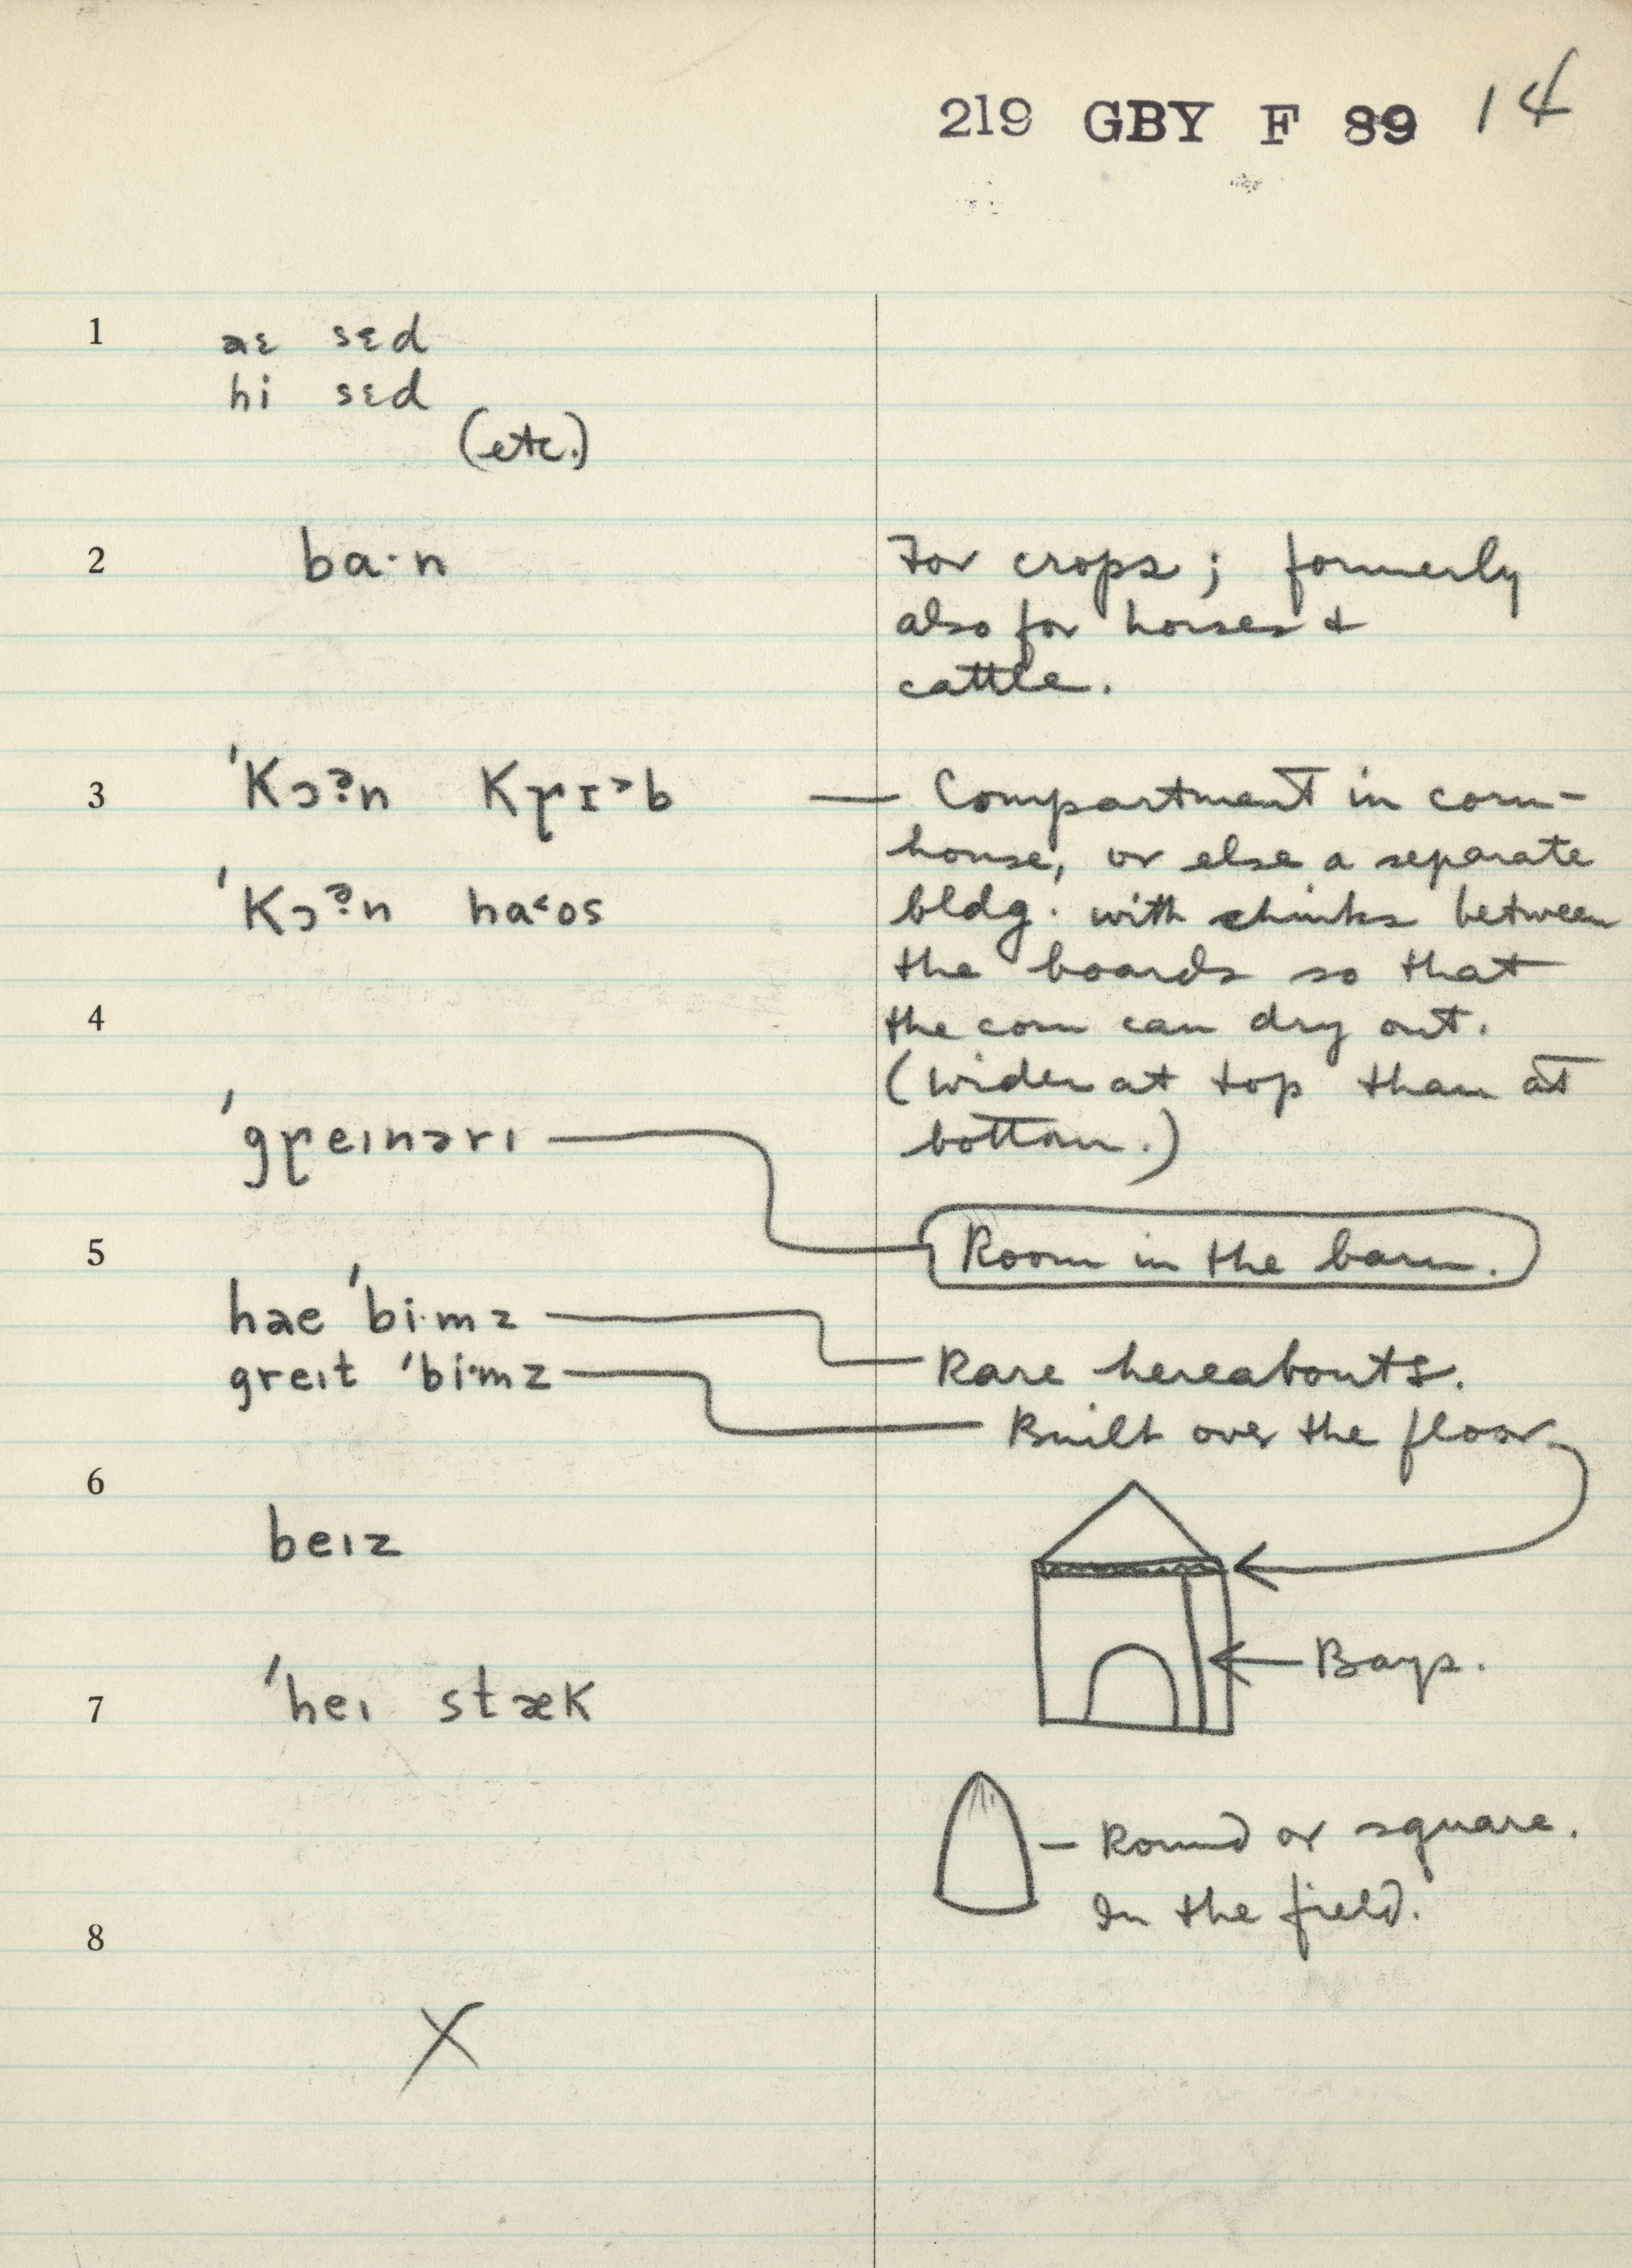 219 GBY F 89 14
1 aɛ sɛd
hi sɛd
(etc.)
2 ba·n For crops; formerly
also for horses &
cattle.
3 'Kɔᵊ̣n Kɼɪ˃b — Compartment in corn-
house, or else a separate
'Kɔᵊ̣n ha˂os bldg. with chinks between
the boards so that
4 the corn can dry out.
(Wider at top than at
'gɼeınərı bottom.)
5 Room in the barn.
hae 'bi·mz Rare hereabouts.
greıt 'bi·mz Built over the floor
6
beız
Bays.
7 'heı stæK
Round or square.
In the field.
8
X